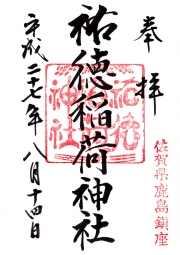 奉拝
佐賀県鹿島鎮座
祐徳稲荷神社
祐徳
神社
平成二十七年八月十四日